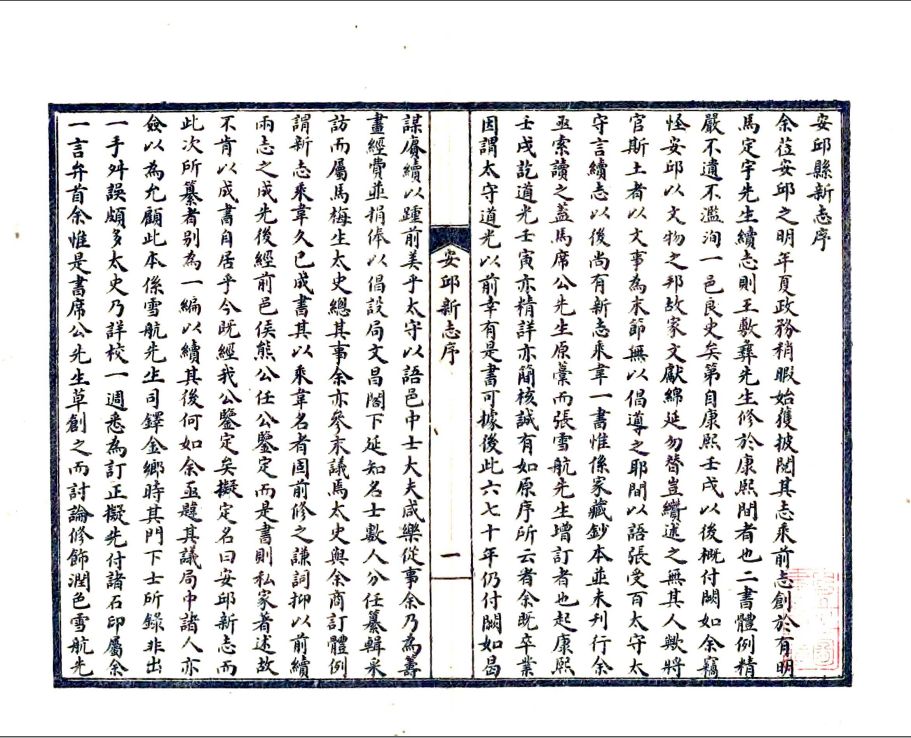 安邱縣新志序
余莅安邱之明年夏政務稍暇始獲披閱其志乘前志創於有明
馬定宇先生續志則王敷彝先生修於康熙閒者也二書體例精
嚴不遺不濫洵一邑良史矣第自康熙壬戌以後概付闕如余竊
怪安邱以文物之邦故家文獻綿延勿替豈纘述之無其人歟將
官斯土者以文事為末節無以倡導之耶間以語張受百太守太
守言續志以後尚有新志乘韋一書惟係家藏鈔本並未刊行余
亟索讀之蓋馬席公先生原稾而張雪航先生增訂者也起康熙
壬戌訖道光壬寅亦精詳亦簡核誠有如原序所云者余既卒業
因謂太守道光以前幸有是書可據後此六七十年仍付闕如曷
安邱新志序
一
謀賡續以踵前美乎太守以語邑中士大夫咸樂從事余乃為籌
畫經費並捐俸以倡設局文昌閣下延知名士數人分任纂輯采
訪而屬馬梅生太史總其事余亦參末議焉太史與余商訂體例
謂新志乘韋久已成書其以乘韋名者固前修之謙詞抑以前續
兩志之成先後經前邑侯熊公任公鑒定而是書則私家著述故
不肯以成書自居乎今既經我公鑒定矣擬定名曰安邱新志而
此次所纂者別為一編以續其後何如余亟韙其議局中諸人亦
僉以為允顧此本係雪航先生司鐸金鄉時其門下士所錄非出
一手舛誤頗多太史乃詳校一過悉為訂正擬先付諸石印屬余
一言弁首余惟是書席公先生草創之而討論修飾潤色雪航先